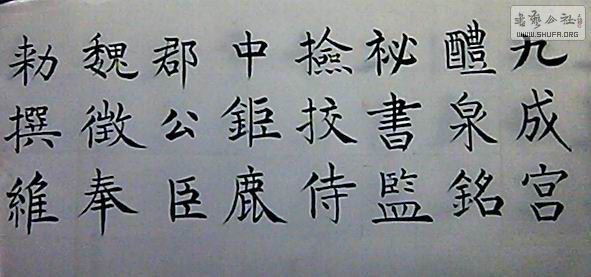 九成宮
醴泉銘
祕書監
撿挍侍
中鉅鹿
郡公臣
魏徵奉
勑撰維
書藝公社
WWW.SHUFA.ORG